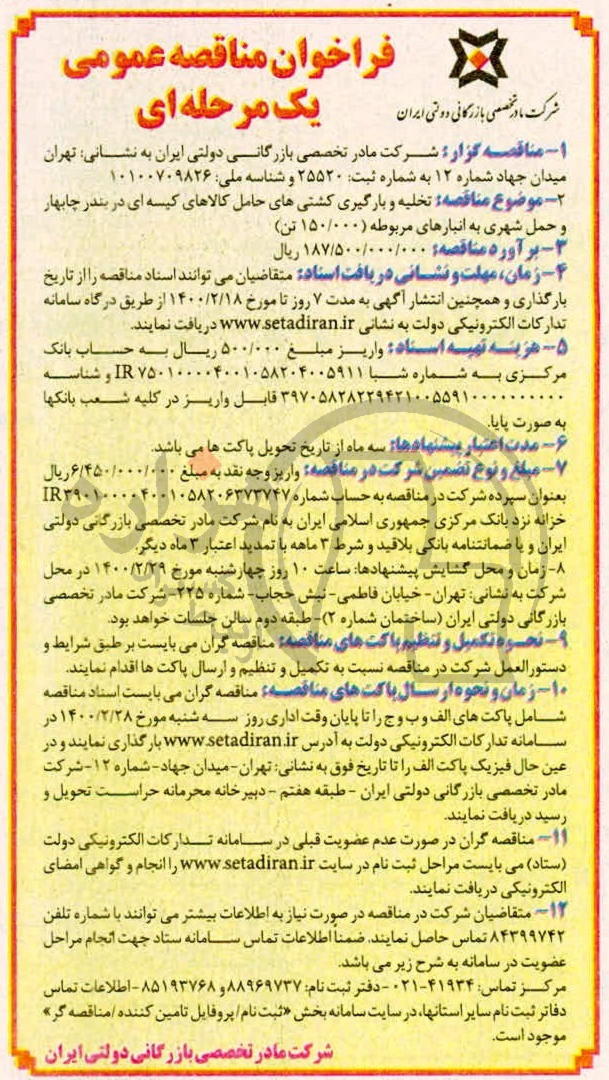 فراخوان مناقصه عمومی
یک مرحله ای
شرکت مادر تخصصی بازرگانی دولتی ایران
۱- مناقصه گزار: شرکت مادر تخصصی بازرگانی دولتی ایران به نشانی: تهران
میدان جهاد شماره ۱۲ به شماره ثبت: ۲۵۵۲۰ و شناسه ملی: ۱۰۱۰۰۷۰۹۸۲۶
۲- موضوع مناقصه: تخلیه و بارگیری کشتی های حامل کالاهای کیسه ای در بندر چابهار
و حمل شهری به انبارهای مربوطه (۱۵۰/۰۰۰ تن)
۳- برآورد مناقصه: ۱۸۷/۵۰۰/۰۰۰/۰۰۰ ریال
۴- زمان، مهلت و نشانی دریافت اسناد: متقاضیان می توانند اسناد مناقصه را از تاریخ
بارگذاری و همچنین انتشار آگهی به مدت ۷ روز تا مورخ ۱۴۰۰/۲/۱۸ از طریق درگاه سامانه
تدارکات الکترونیکی دولت به نشانی www.setadiran.ir دریافت نمایند.
۵- هزینه تهیه اسناد: واریز مبلغ ۵۰۰/۰۰۰ ریال به حساب بانک
مرکزی به شماره شبا IR ۷۵۰۱۰۰۰۰۴۰۰۱۰۵۸۲۰۴۰۰۵۹۱۱ و شناسه
۳۹۷۰۵۸۲۸۲۲۹۴۲۱۰۰۵۵۹۱۰۰۰۰۰۰۰۰۰۰ قابل واریز در کلیه شعب بانکها
به صورت پایا.
۶- مدت اعتبار پیشنهادها: سه ماه از تاریخ تحویل پاکت ها می باشد.
۷- مبلغ و نوع تضمین شرکت در مناقصه: واریز وجه نقد به مبلغ ۶/۴۵۰/۰۰۰/۰۰۰ ریال
بعنوان سپرده شرکت در مناقصه به حساب شماره IR۳۹۰۱۰۰۰۰۴۰۰۱۰۵۸۲۰۶۳۷۳۷۴۷
خزانه نزد بانک مرکزی جمهوری اسلامی ایران به نام شرکت مادر تخصصی بازرگانی دولتی
ایران و یا ضمانتنامه بانکی بلاقید و شرط ۳ ماهه با تمدید اعتبار ۳ ماه دیگر.
۸- زمان و محل گشایش پیشنهادها: ساعت ۱۰ روز چهارشنبه مورخ ۱۴۰۰/۲/۲۹ در محل
شرکت به نشانی: تهران- خیابان فاطمی- نبش حجاب- شماره ۲۲۵- شرکت مادر تخصصی
بازرگانی دولتی ایران (ساختمان شماره ۲)- طبقه دوم سالن جلسات خواهد بود.
۹- نحوه تکمیل و تنظیم پاکت های مناقصه: مناقصه گران می بایست بر طبق شرایط و
دستورالعمل شرکت در مناقصه نسبت به تکمیل و تنظیم و ارسال پاکت ها اقدام نمایند.
۱۰- زمان و نحوه ارسال پاکت های مناقصه: مناقصه گران می بایست اسناد مناقصه
شامل پاکت های الف و ب و ج را تا پایان وقت اداری روز سه شنبه مورخ ۱۴۰۰/۲/۲۸ در
سامانه تدارکات الکترونیکی دولت به آدرس www.setadiran.ir بارگذاری نمایند و در
عین حال فیزیک پاکت الف را تا تاریخ فوق به نشانی: تهران- میدان جهاد- شماره ۱۲- شرکت
مادر تخصصی بازرگانی دولتی ایران - طبقه هفتم - دبیرخانه محرمانه حراست تحویل و
رسید دریافت نمایند.
۱۱- مناقصه گران در صورت عدم عضویت قبلی در سامانه تدارکات الکترونیکی دولت
(ستاد) می بایست مراحل ثبت نام در سایت www.setadiran.ir را انجام و گواهی امضای
الکترونیکی دریافت نمایند.
۱۲- متقاضیان شرکت در مناقصه در صورت نیاز به اطلاعات بیشتر می توانند با شماره تلفن
۸۴۳۹۹۷۴۲ تماس حاصل نمایند. ضمناً اطلاعات تماس سامانه ستاد جهت انجام مراحل
عضویت در سامانه به شرح زیر می باشد.
مرکز تماس: ۴۱۹۳۴-۰۲۱ -دفتر ثبت نام: ۸۸۹۶۹۷۳۷ و ۸۵۱۹۳۷۶۸ -اطلاعات تماس
دفاتر ثبت نام سایر استانها، در سایت سامانه بخش «ثبت نام/پروفایل تامین کننده/مناقصه گر»
موجود است.
شرکت مادر تخصصی بازرگانی دولتی ایران